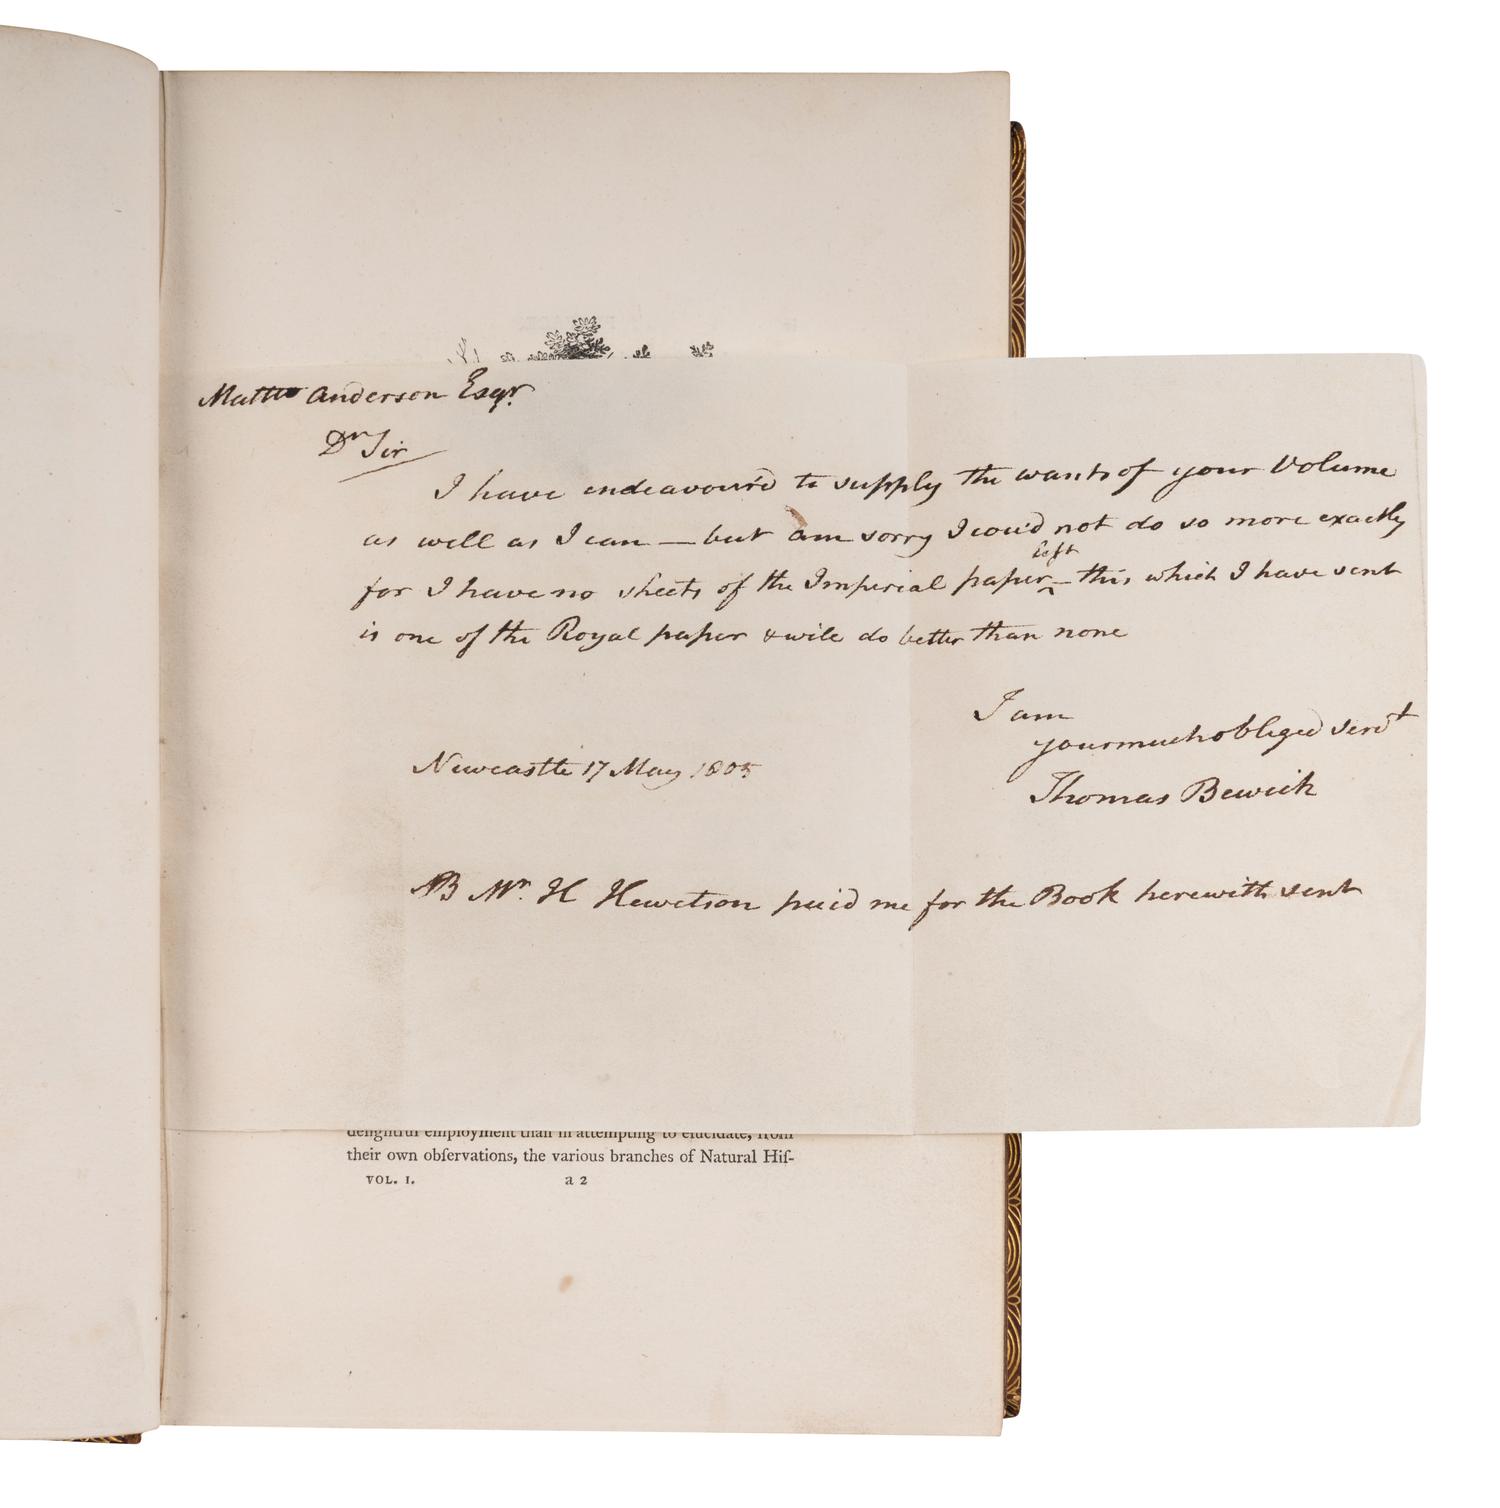 Mattw Anderson Esqr.
Dr Sir
I have endeavour'd to supply the wants of your Volume
as well as I can — but am sorry I cou'd not do so more exactly
left
for I have no sheets of the Imperial paper ‸ — this which I have sent
is one of the Royal paper & will do better than none
I am
your much obliged servt
Newcastle 17 May 1805
Thomas Bewick
NB Mr. H Hewetson paid me for the Book herewith sent
delightful employment than in attempting to elucidate, from
their own obſervations, the various branches of Natural Hiſ-
VOL. I. a 2